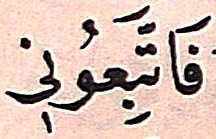 فَاتَّبِعُونِي